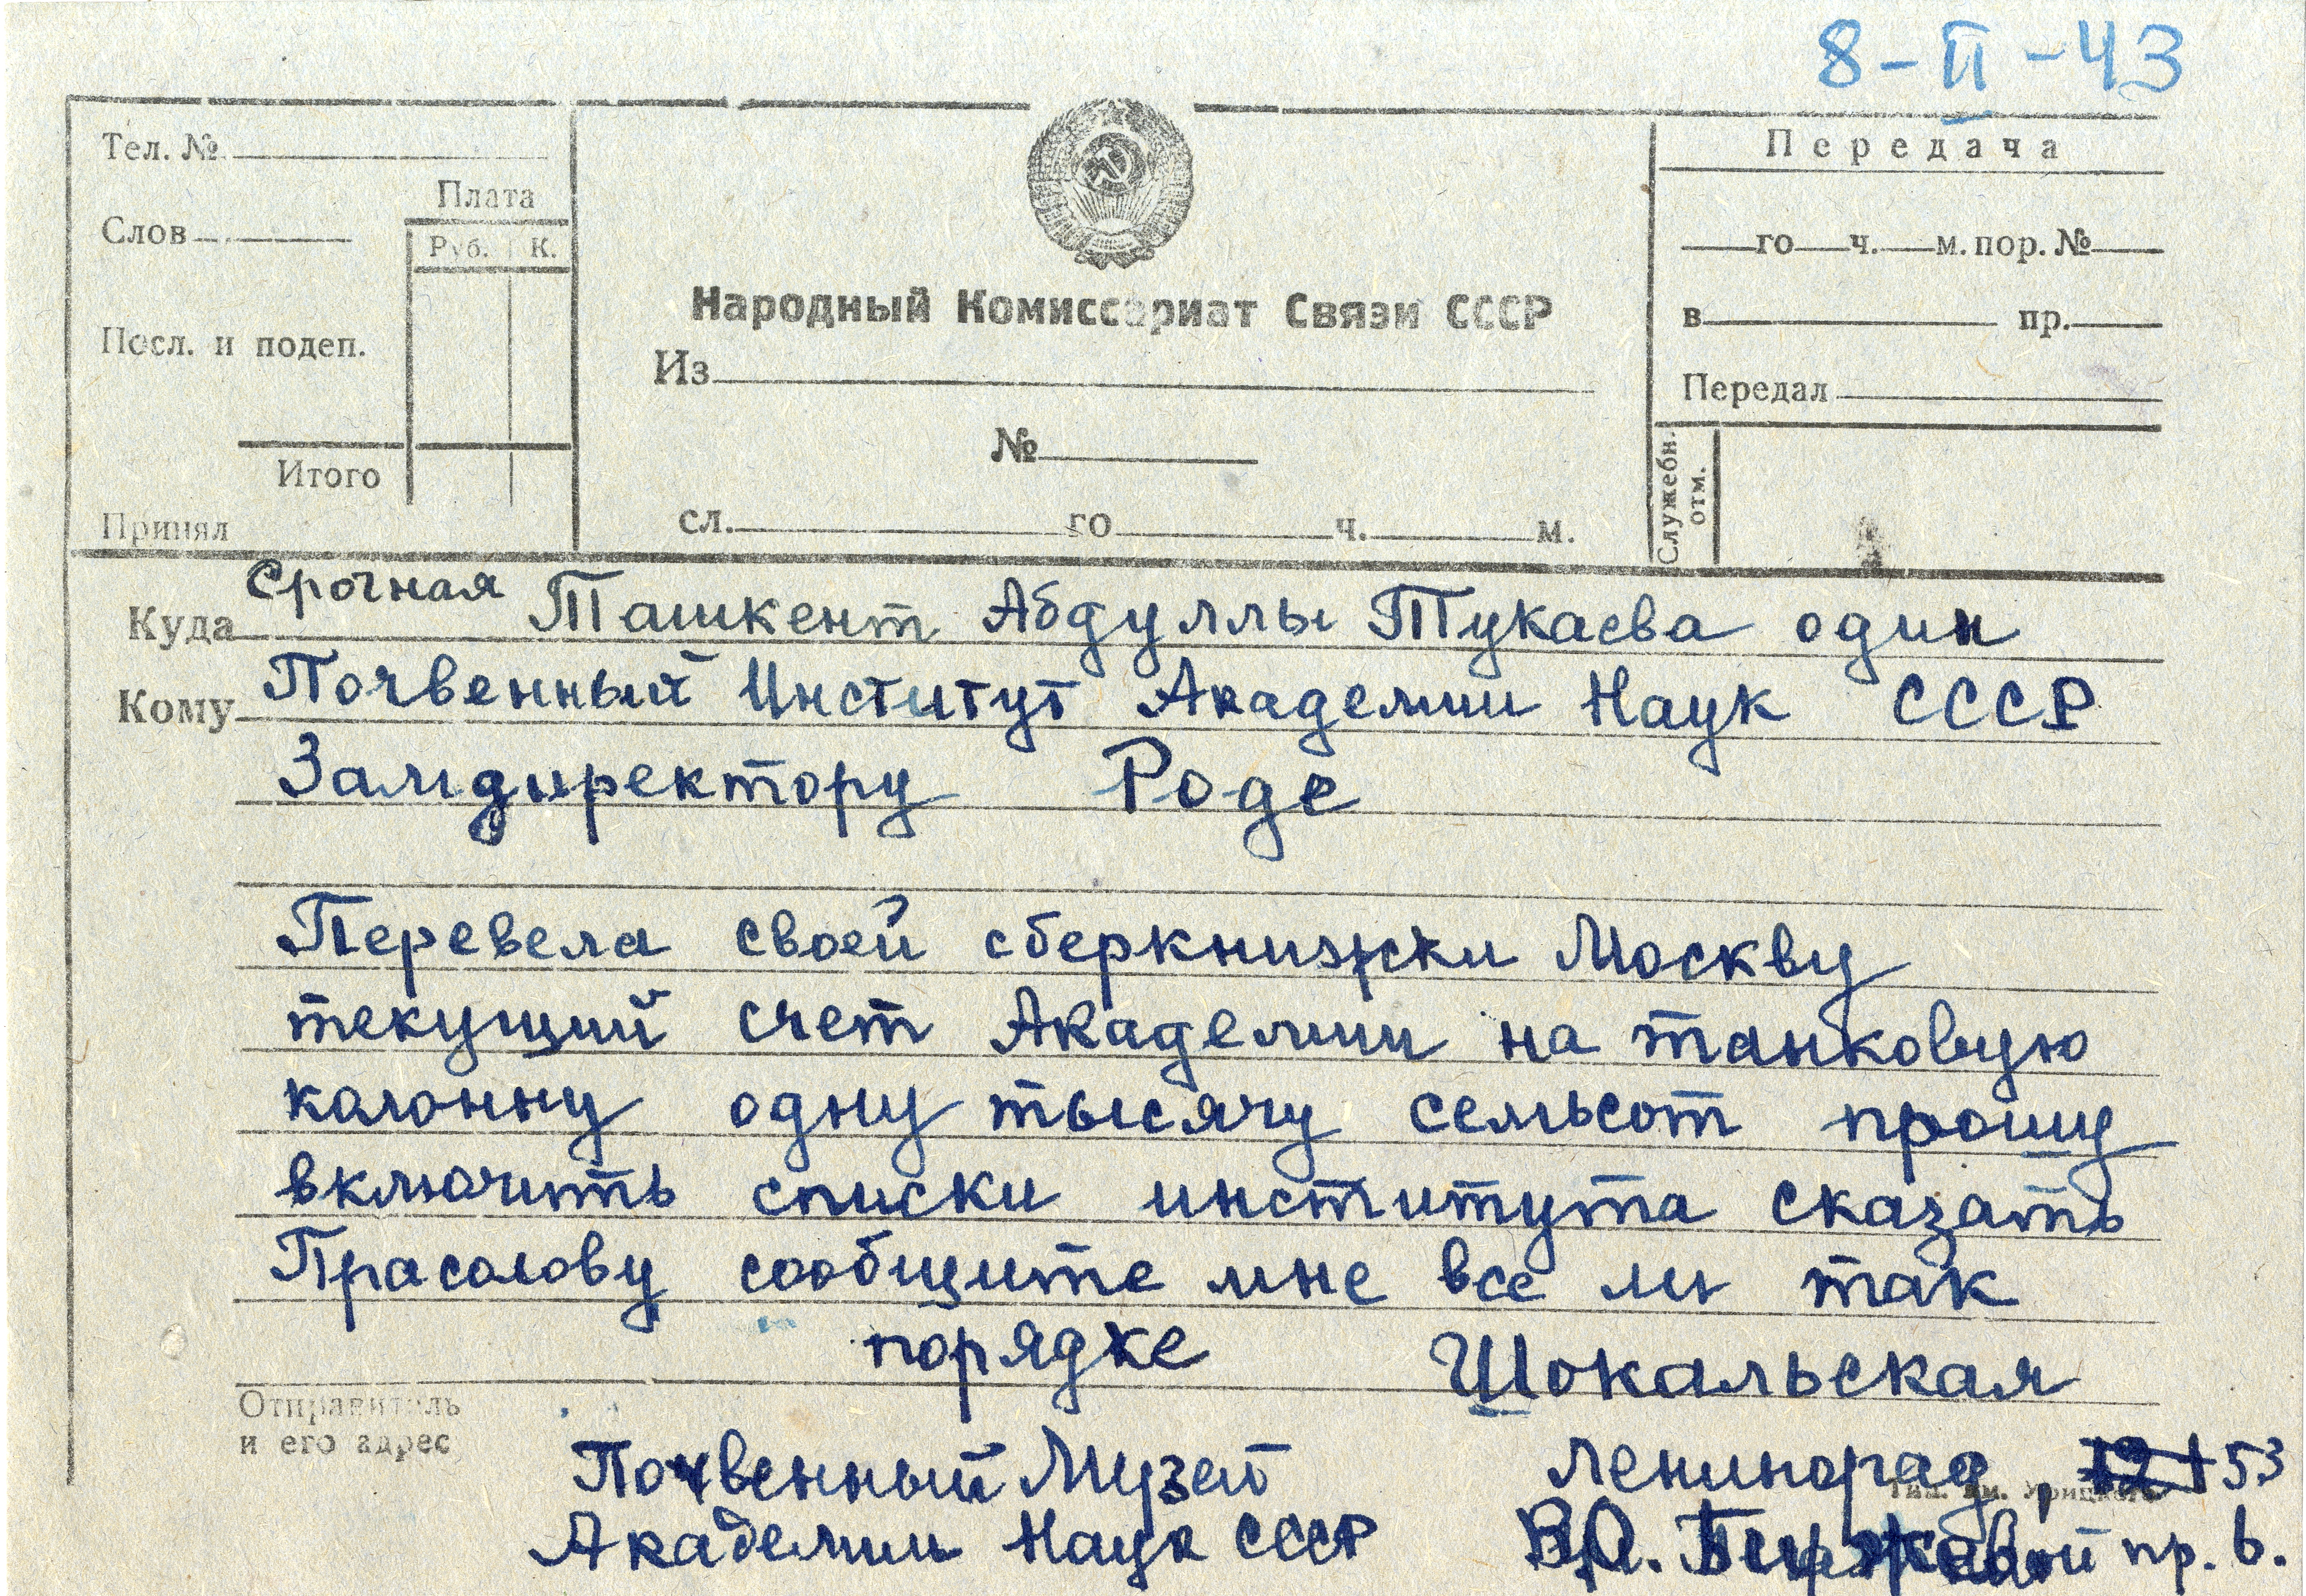 8-II-43
Тел. №
Плата
Слов
Руб. К.
Посл. и подеп.
Итого
Принял
Народный Комиссариат Связи СССР
Из
№
сл. го ч. м.
Передача
го ч. м. пор. №
в пр.
Передал
Служебн. отм.
Срочная
Куда Ташкент Абдуллы Тукаева один
Кому Почвенный Институт Академии Наук СССР
Замдиректору Роде
Перевела своей сберкнижки Москву
текущий счет Академии на танковую
колонну одну тысячу семьсот прошу
включить списки института сказать
Прасолову сообщите мне все ли так
порядке Шокальская
Отправитель
и его адрес
Почвенный Музей Ленинград, 53
Академии Наук СССР В.О. Биржевой пр. 6.
Тип. им. Урицкого